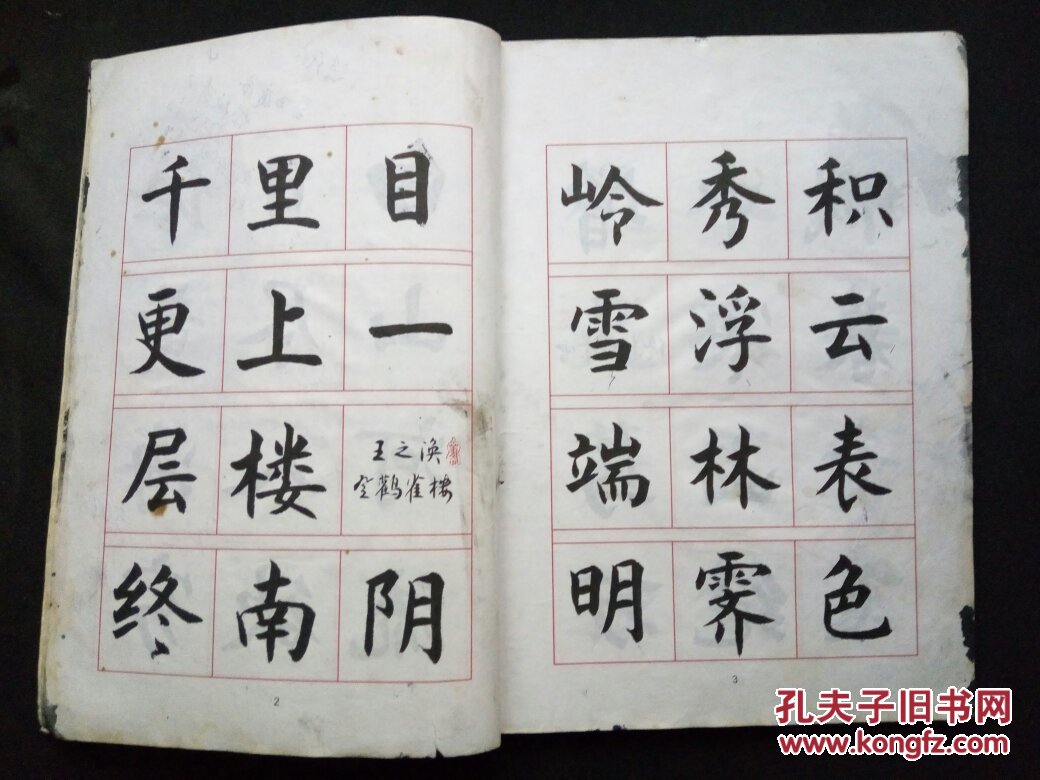 千里目
更上一
层楼
王之涣
登鹳雀楼
终南阴
2
岭秀积
雪浮云
端林表
明霁色
3
孔夫子旧书网
www.kongfz.com